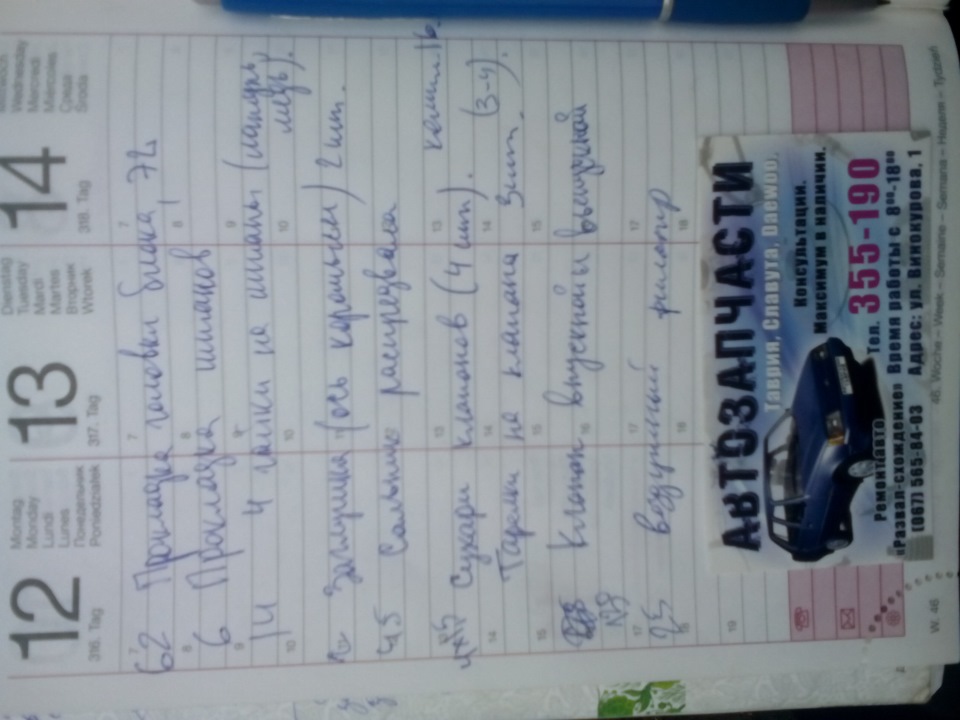 12
Montag
Monday
Lundi
Lunes
Понедельник
Poniedziałek
316. Tag
13
Dienstag
Tuesday
Mardi
Martes
Вторник
Wtorek
317. Tag
14
Wednesday
Mercredi
Miércoles
Среда
Środa
318. Tag
62 Прокладка головки блока, 72
6 Прокладка штанов
14 4 гайки на штаны (латунь
медь).
Заглушка (ось коромысел) 2 шт.
45 Сальник распредвала
4х45 Сухари клапанов (4 шт).
Тарелки на клапана 3 шт. (3-4).
Клапан впускной выпускной
25 воздушный фильтр
7 7 7
8 8 8
9 9 9
10 10 10
13 13
14 14 14
15 15 15
16
17 17 17
18 18
19
АВТОЗАПЧАСТИ
Таврия, Славута, Daewoo.
Консультации.
Максимум в наличии.
Ремонт авто
«Развал-схождение»
(067) 565-84-03
Тел. 355-190
Время работы с 8⁰⁰-18⁰⁰
Адрес: ул. Винокурова, 1
W. 46
46. Woche – Week – Semaine – Semana – Неделя – Tydzień